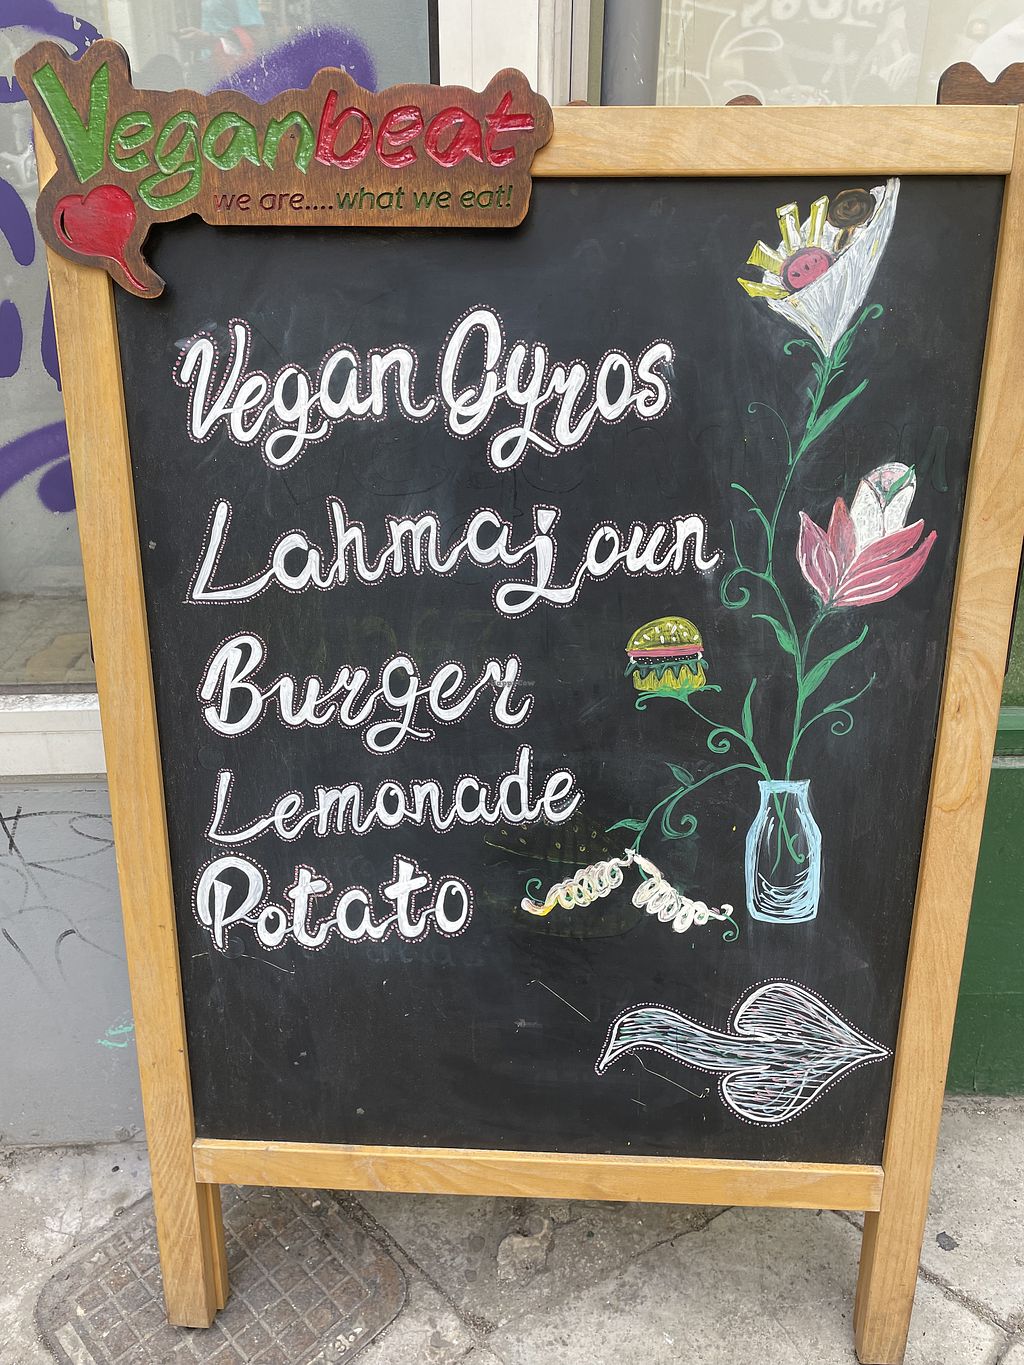 Veganbeat
we are....what we eat!
Vegan Gyros
Lahmajoun
Burger
Lemonade
Potato